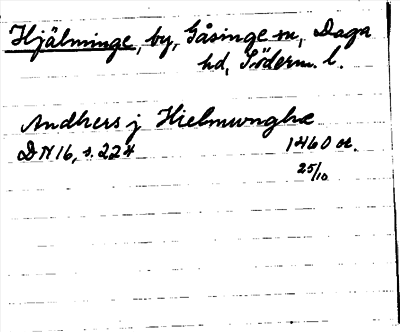 Hjälminge, by, Gåsinge sn, Daga
hd, Söderm. l.
Andhers j Hielmwnghæ
DN 16, s. 224 1460 or.
25/10